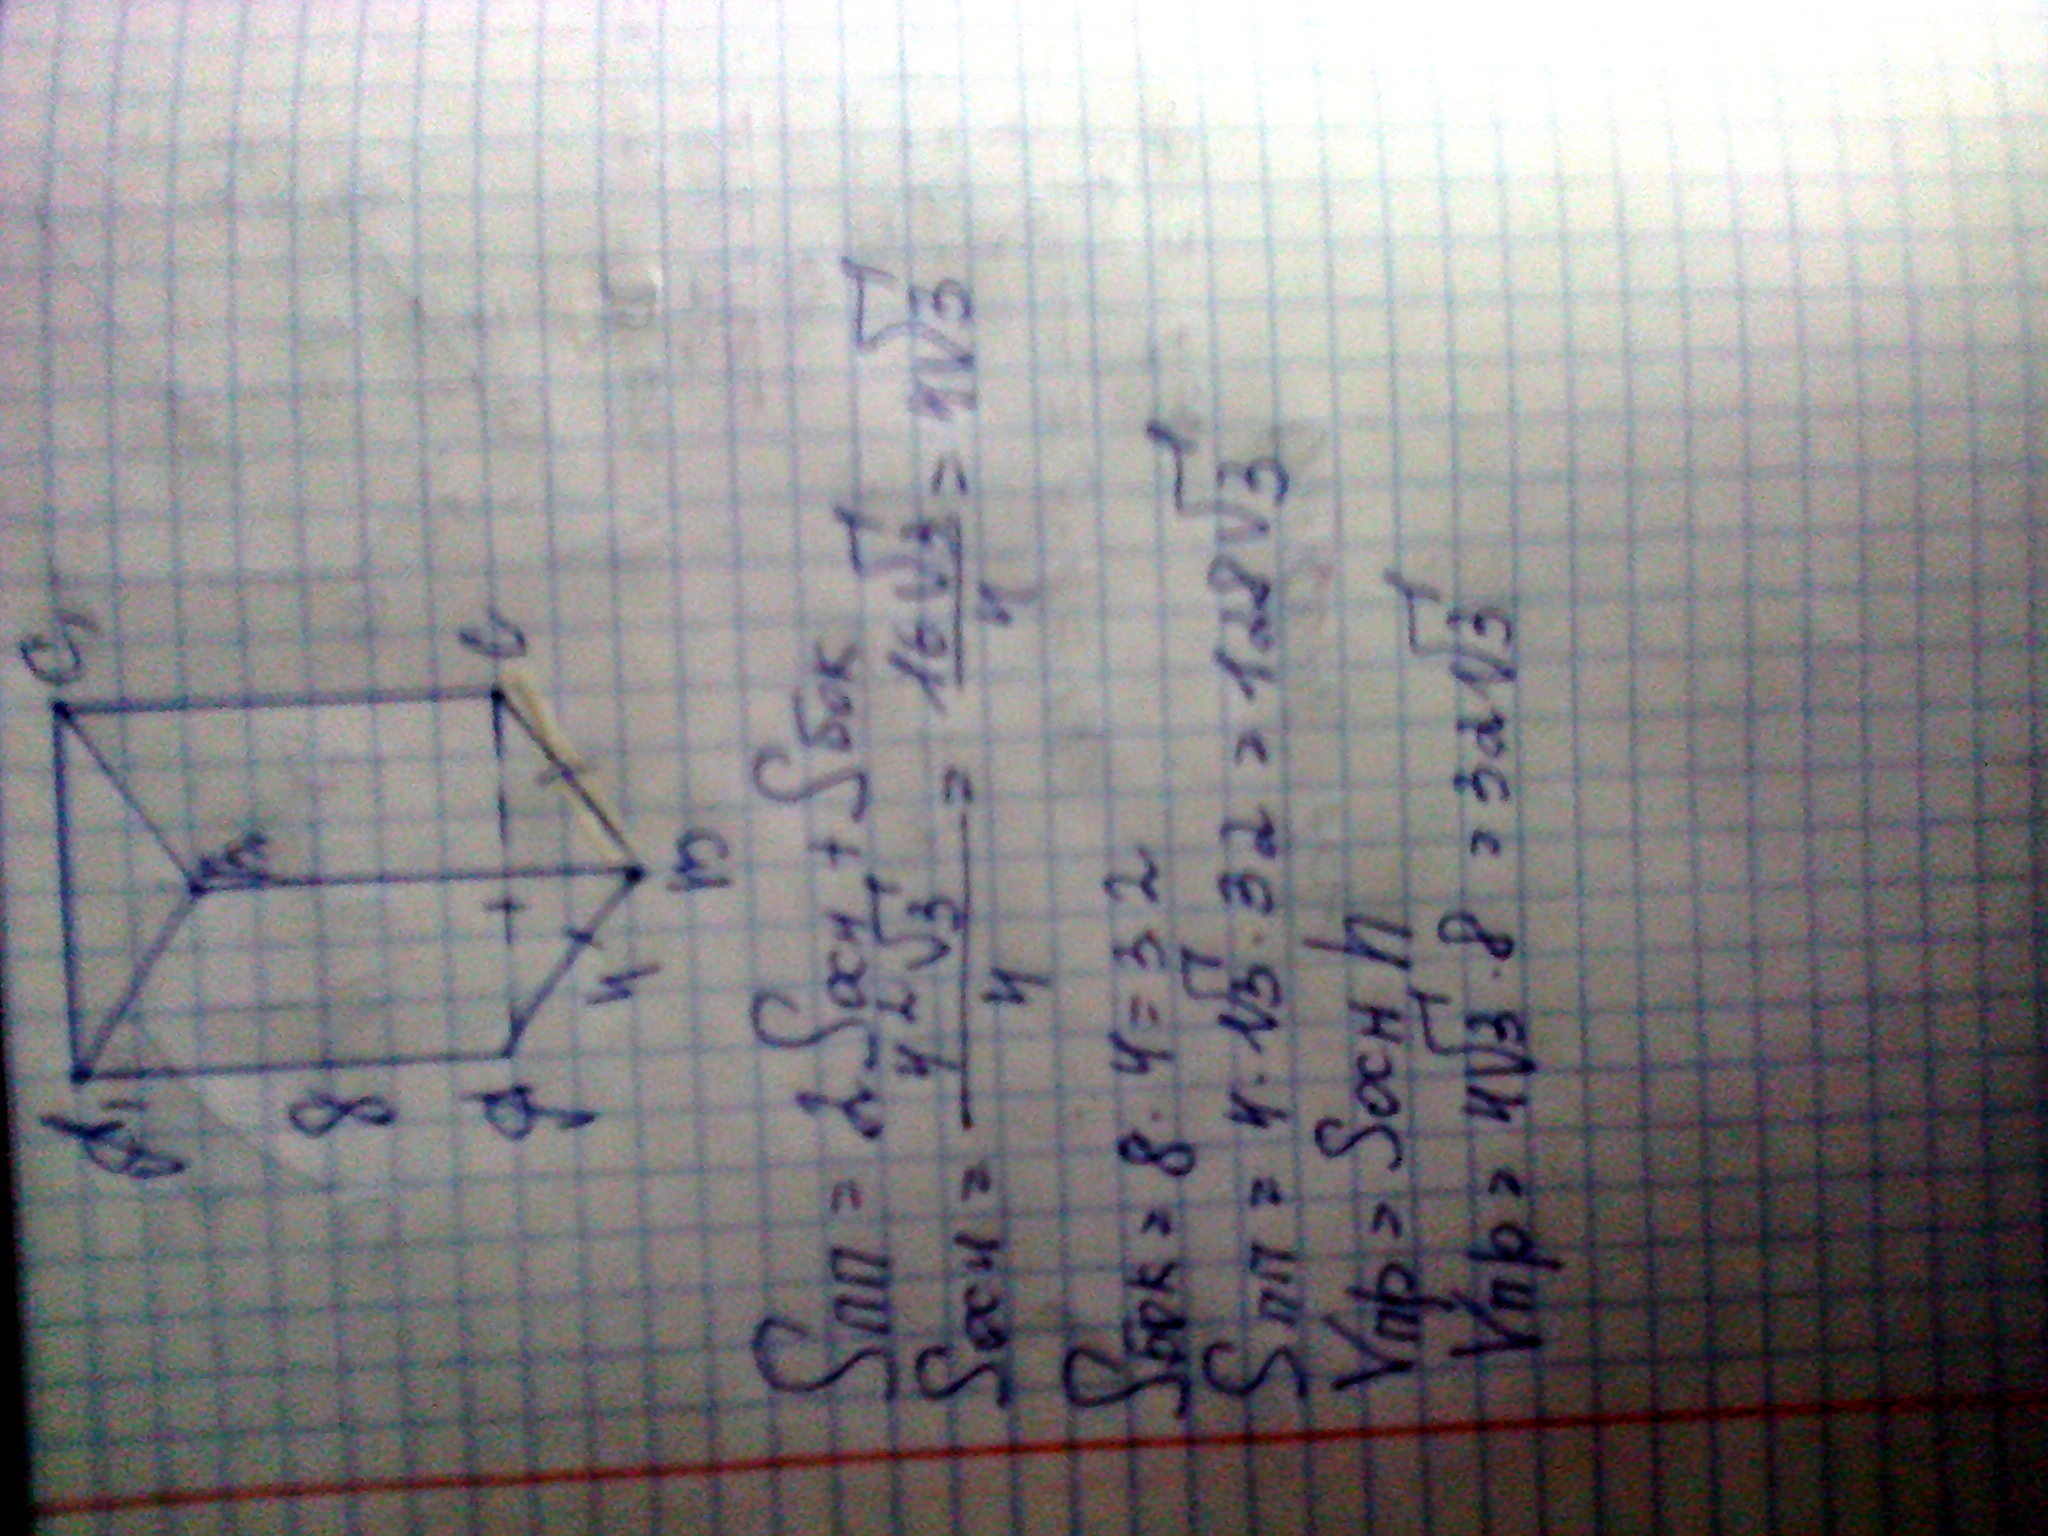 A₁ C₁
B₁
8
A C
4
B
Sпп = 2·Sосн + Sбок
Sосн = 4²√3/4 = 16√3/4 = 4√3
Sбок = 8·4=32
Sпп = 4·√3·32 = 128√3
Vпр = Sосн h
Vпр = 4√3·8 = 32√3